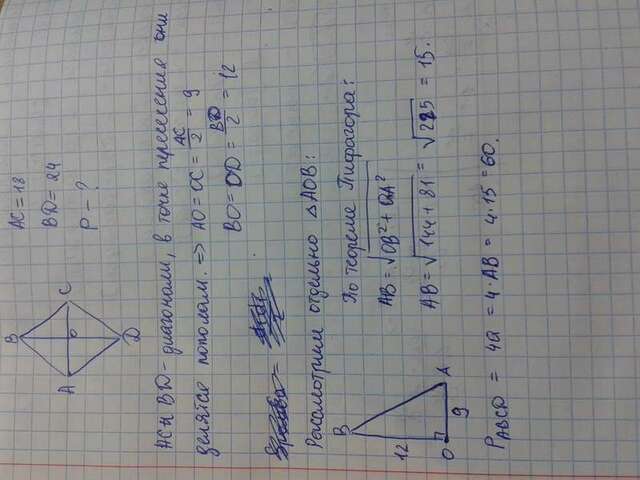 B
A
C
D
O
AC = 18
BD = 24
P - ?
AC и BD - диагонали, в точке пересечения они
делятся пополам. => AO = OC = AC/2 = 9
BO = OD = BD/2 = 12
Рассмотрим отдельно △AOB:
B
12
O
9
A
По теореме Пифагора:
AB = √OB² + OA²
AB = √144 + 81 = √225 = 15.
P ABCD = 4a = 4 · AB = 4 · 15 = 60.